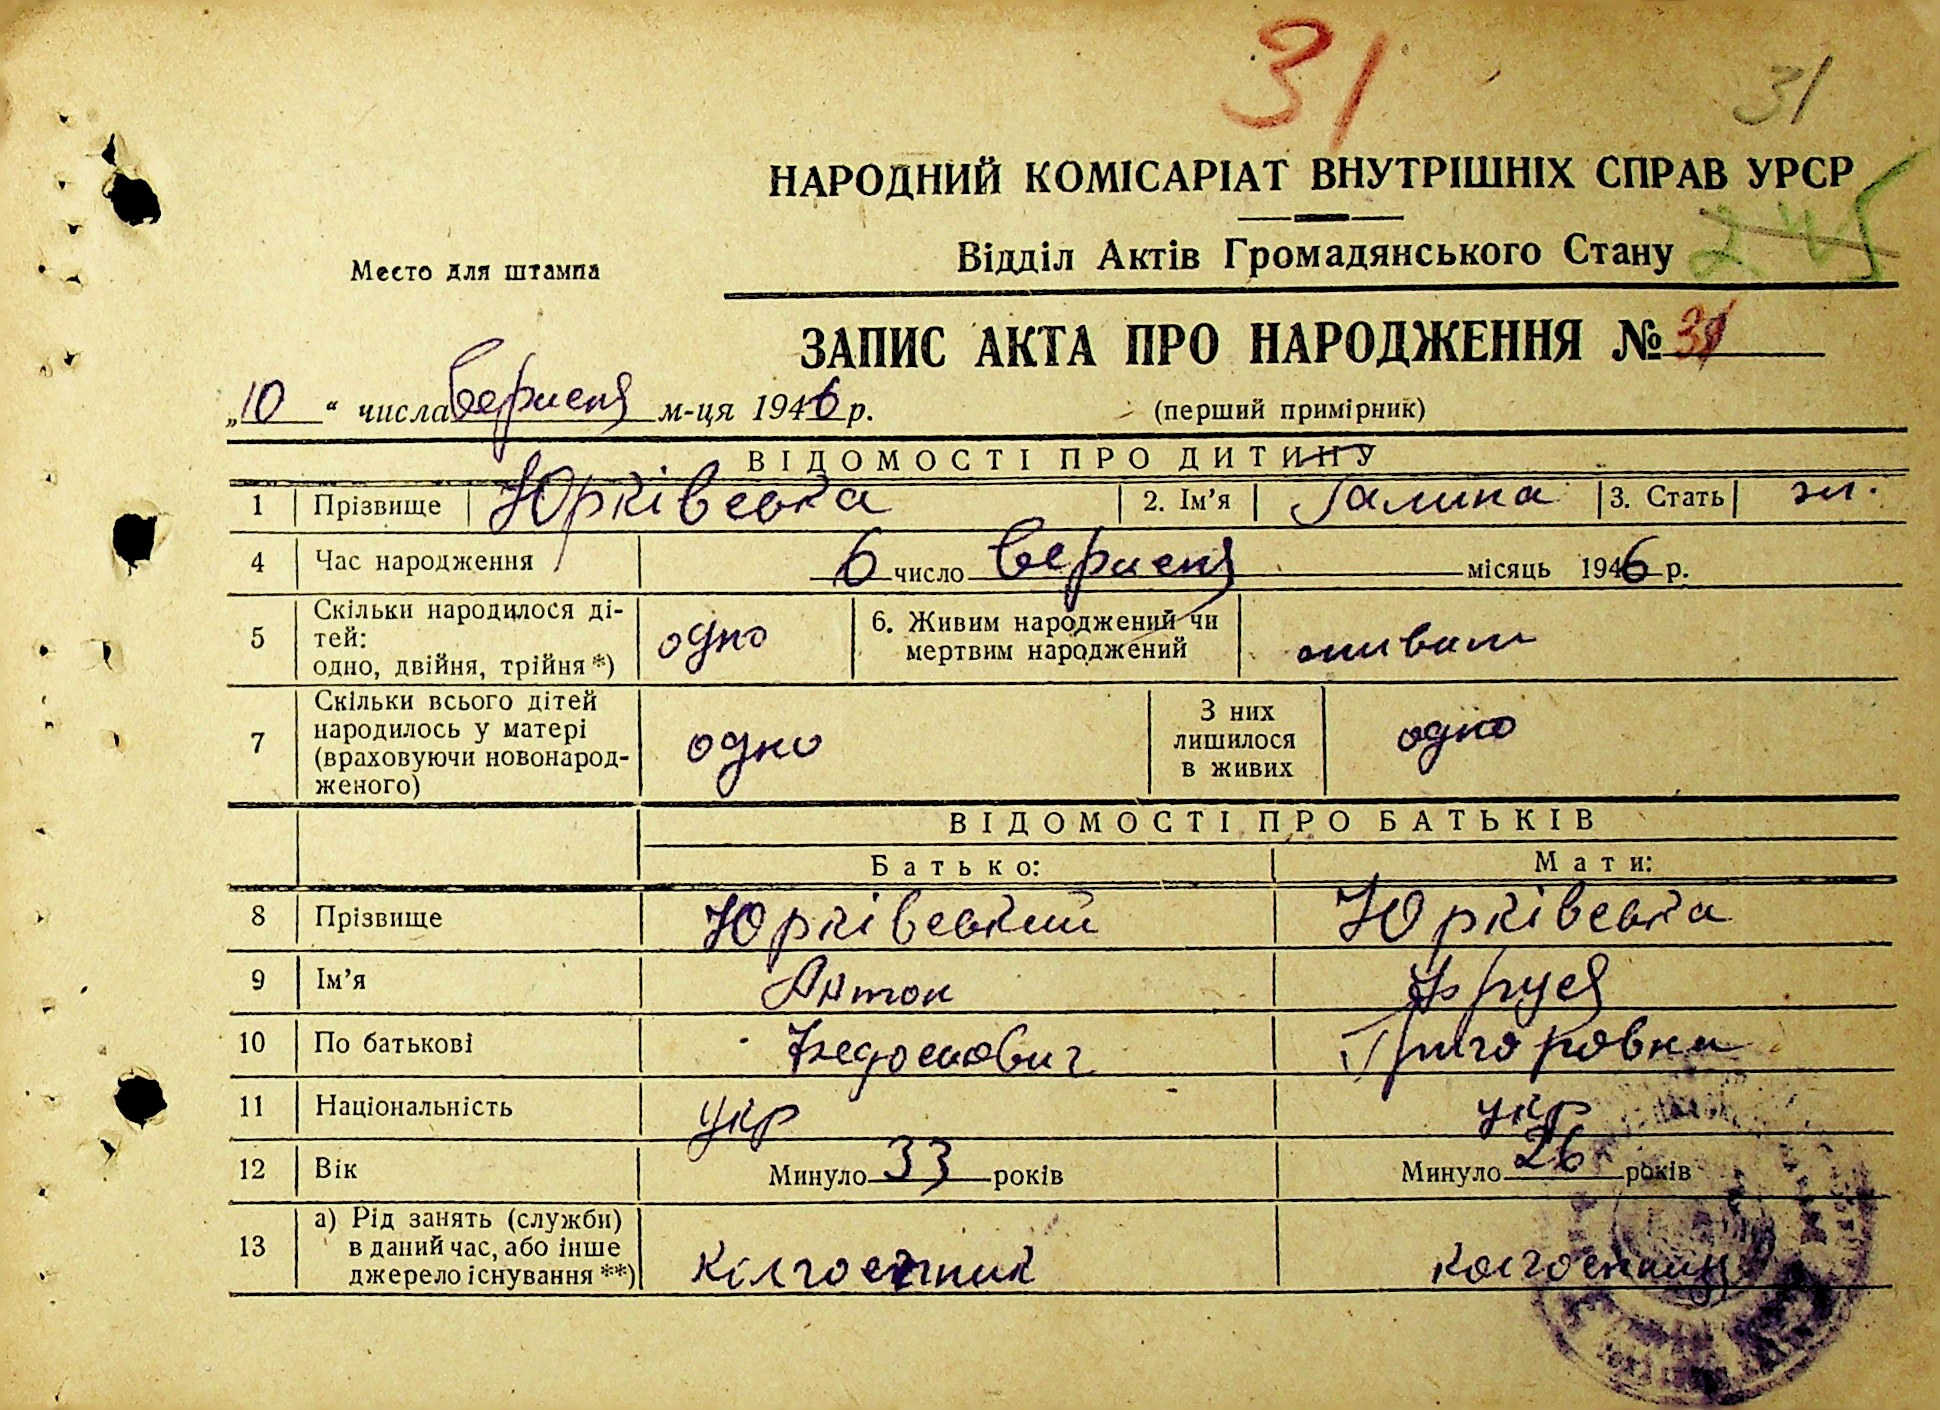 31
31
НАРОДНИЙ КОМІСАРІАТ ВНУТРІШНІХ СПРАВ УРСР
245
Відділ Актів Громадянського Стану
Место для штампа
ЗАПИС АКТА ПРО НАРОДЖЕННЯ № 31
„10“ числа вересня м-ця 1946 р. (перший примірник)
ВІДОМОСТІ ПРО ДИТИНУ
1 Прізвище Юрківська 2. Ім’я Галина 3. Стать жі.
4 Час народження 6 число вересня місяць 1946 р.
5 Скільки народилося ді-
тей:
одно, двійня, трійня*) одно 6. Живим народжений чи
мертвим народжений живим
7 Скільки всього дітей
народилось у матері
(враховуючи новонарод-
женого) одно З них
лишилося
в живих одно
ВІДОМОСТІ ПРО БАТЬКІВ
Батько: Мати:
8 Прізвище Юрківський Юрківська
9 Ім’я Антон Фруся
10 По батькові Федосиович Григоровна
11 Національність укр укр
12 Вік Минуло 33 років Минуло 26 років
13 а) Рід занять (служби)
в даний час, або інше
джерело існування**) колгоспник колгоспниця